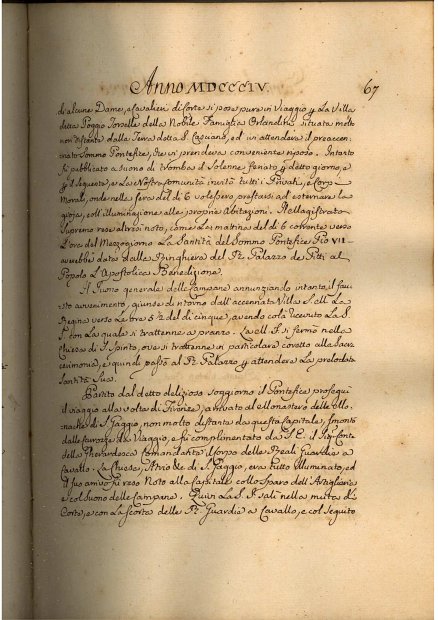 Anno MDCCCIV. 67
di alcune Dame, e Cavalieri di Corte si pose pure in Viaggio p la Villa
detta Poggio Torselli della Nobile Famiglia Orlandini situata molto
non distante dalla Terra detta S. Casciano, ed ivi attendeva il preaccen-
nato Sommo Pontefice, che vi prendeva conveniente riposo. Intanto
fu pubblicato a suono di tromba il Solenne feriato p detto giorno, e
p il seguente, e La Nostra Comunità invitò tutti i Privati, e Corpi
Morali, onde nella sera del dì 6 volessero prestarsi ad esternare la
gioja, coll'illuminazione alle proprie Abitazioni. Il Magistrato
Supremo rese altresì noto, come La mattina del dì 6 corrente verso
L'ore del Mezzogiorno La Santità del Sommo Pontefice Pio VII
averebbe data dalla Ringhiera del R. Palazzo de Pitti al
Popolo L'Apostolica Benedizione.
Al Suono generale delle Campane annunziando intanto il fau-
sto avvenimento, giunse di ritorno dall'accennata Villa S. M. La
Regina verso Le Ore 5 1/2 del dì cinque, avendo colà ricevuto La S.
S. con La quale si trattenne a pranzo. La M. S. si fermò nella
Chiesa di S. Spirito, ove si trattenne in particolare coretto alla Sacra
ceremonia, e quindi passò al R. Palazzo p attendere La prelodata
Santità Sua.
Partito dal detto delizioso soggiorno il Pontefice proseguì
il viaggio alla volta di Firenze, arrivato al Monastero delle Mo-
nache di S. Gaggio, non molto distante da questa Capitale, smontò
dalla Carrozza di Viaggio, e fù complimentato da S. E. il Sig. Conte
della Gherardesca Comandante il Corpo delle Reali Guardie a
Cavallo. La Chiesa, e Atrio &c di S. Gaggio, era tutto illuminato, ed
il suo arrivo fù reso Noto alla Capitale collo sparo dell'Artiglieria
e col suono delle Campane. Quivi La S. S. salì nella muta di
Corte, e con La scorta delle R. Guardie a Cavallo, e col seguito